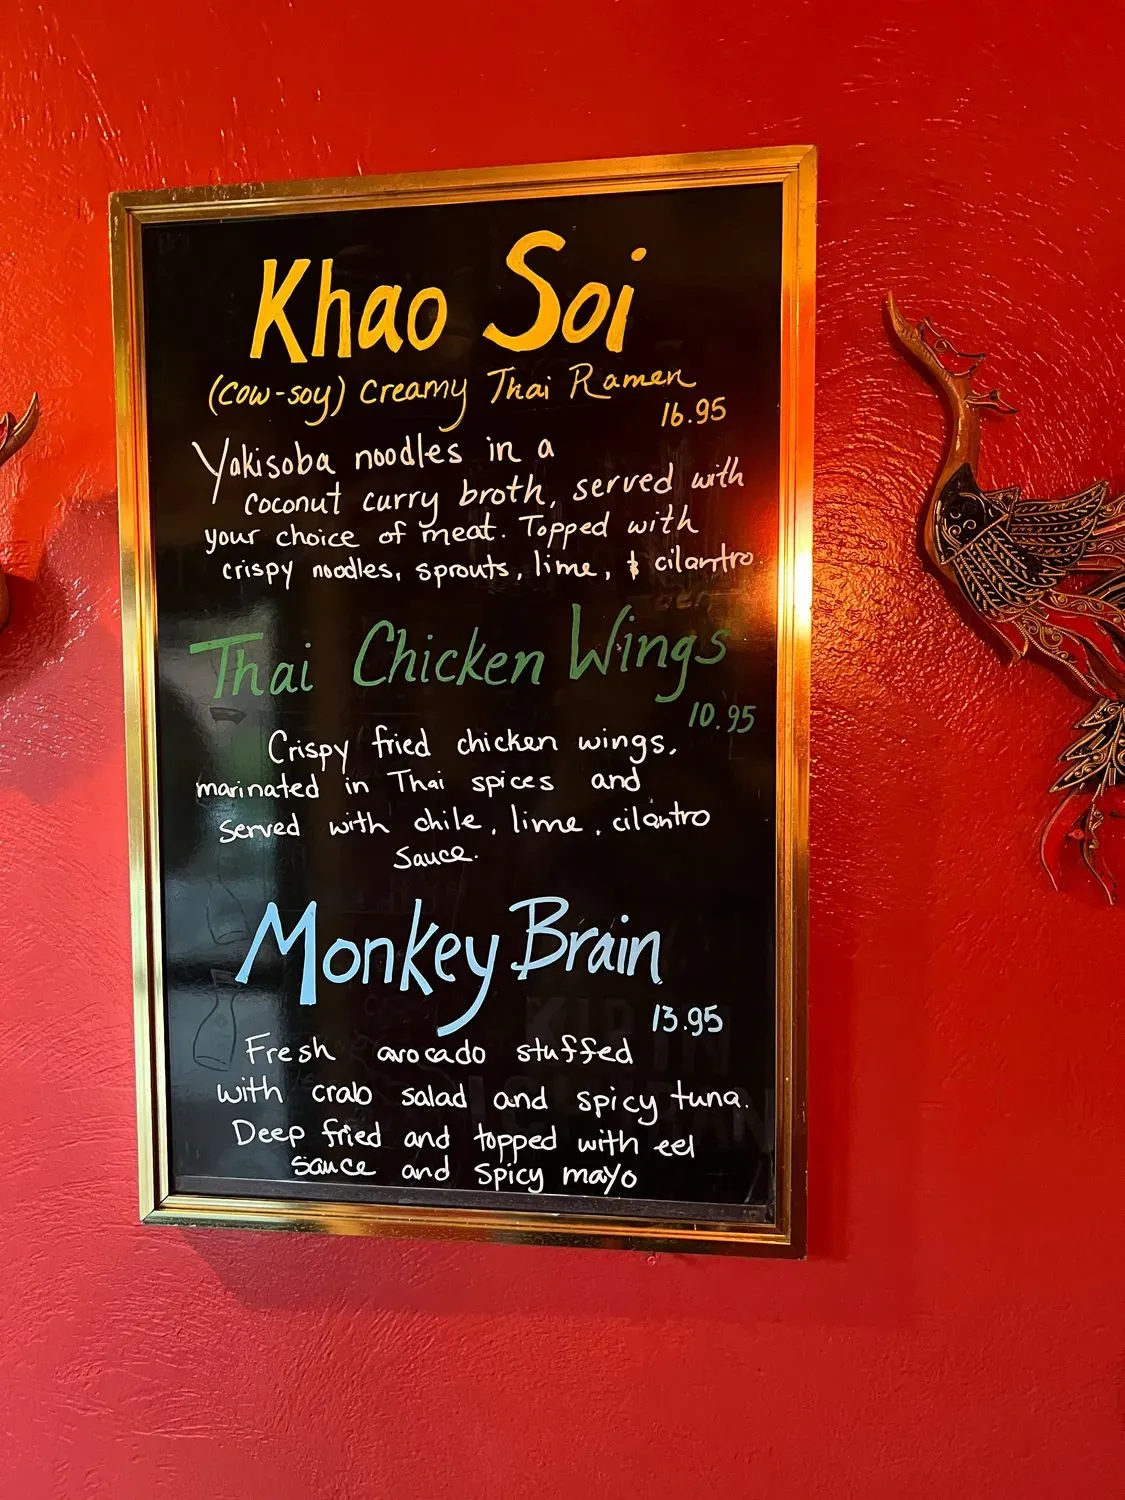 Khao Soi
(cow-soy) Creamy Thai Ramen
16.95
Yakisoba noodles in a
coconut curry broth, served with
your choice of meat. Topped with
crispy noodles, sprouts, lime, & cilantro.
Thai Chicken Wings
10.95
Crispy fried chicken wings,
marinated in Thai spices and
served with chile, lime, cilantro
sauce.
Monkey Brain
13.95
Fresh avocado stuffed
with crab salad and spicy tuna.
Deep fried and topped with eel
sauce and spicy mayo